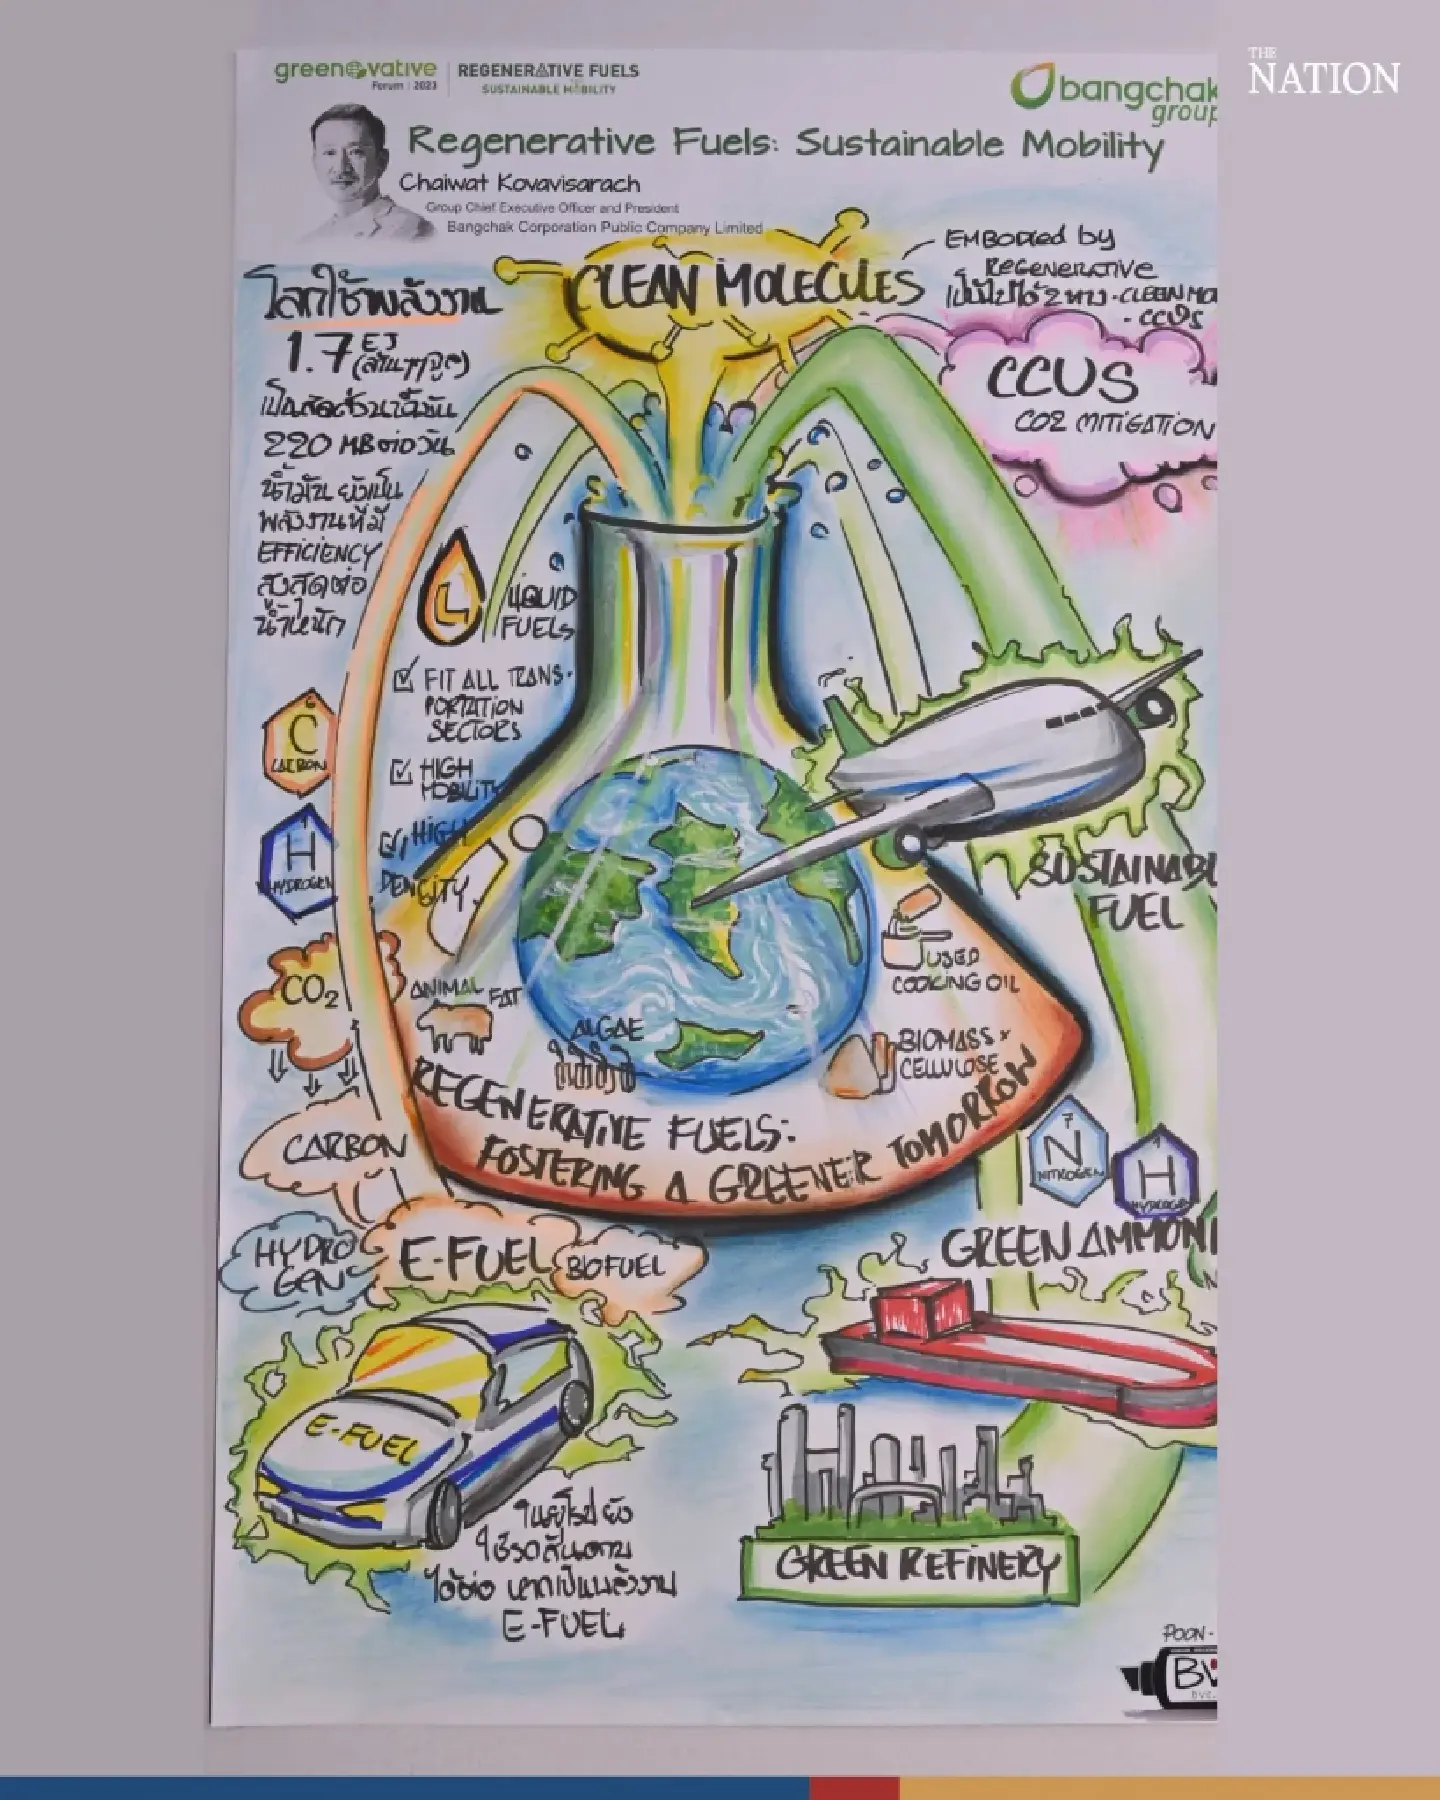 THE
NATION
greenovative
Forum | 2023
REGENERATIVE FUELS
SUSTAINABLE MOBILITY
bangchak
group
Regenerative Fuels: Sustainable Mobility
Chaiwat Kovavisarach
Group Chief Executive Officer and President
Bangchak Corporation Public Company Limited
CLEAN MOLECULES
EMBODIED by
REGENERATIVE
เป็นไปได้ 2 ทาง • CLEAN MO
- CCUS
CCUS
CO2 MITIGATION
โลกใช้พลังงาน
1.7 EJ
(ล้านๆๆจูล)
เป็นสัดส่วนน้ำมัน
220 MB ต่อวัน
น้ำมัน ยังเป็น
พลังงานที่มี
EFFICIENCY
สูงสุดต่อ
น้ำหนัก
L
LIQUID
FUELS
FIT ALL TRANS-
PORTATION
SECTORS
HIGH
MOBILITY
HIGH
DENCITY
6
C
CARBON
1
H
HYDROGEN
CO2
CARBON
HYDRO
GEN
E-FUEL
BIOFUEL
ANIMAL FAT
ALGAE
USED
COOKING OIL
BIOMASS
CELLULOSE
REGENERATIVE FUELS:
FOSTERING A GREENER TOMORROW
SUSTAINABL
FUEL
7
N
NITROGEN
1
H
HYDROGEN
GREEN AMMONI
E-FUEL
ในยุโรป ยัง
ใช้รถสันดาป
ได้ต่อ หากเป็นพลังงาน
E-FUEL
GREEN REFINERY
POON-
BV